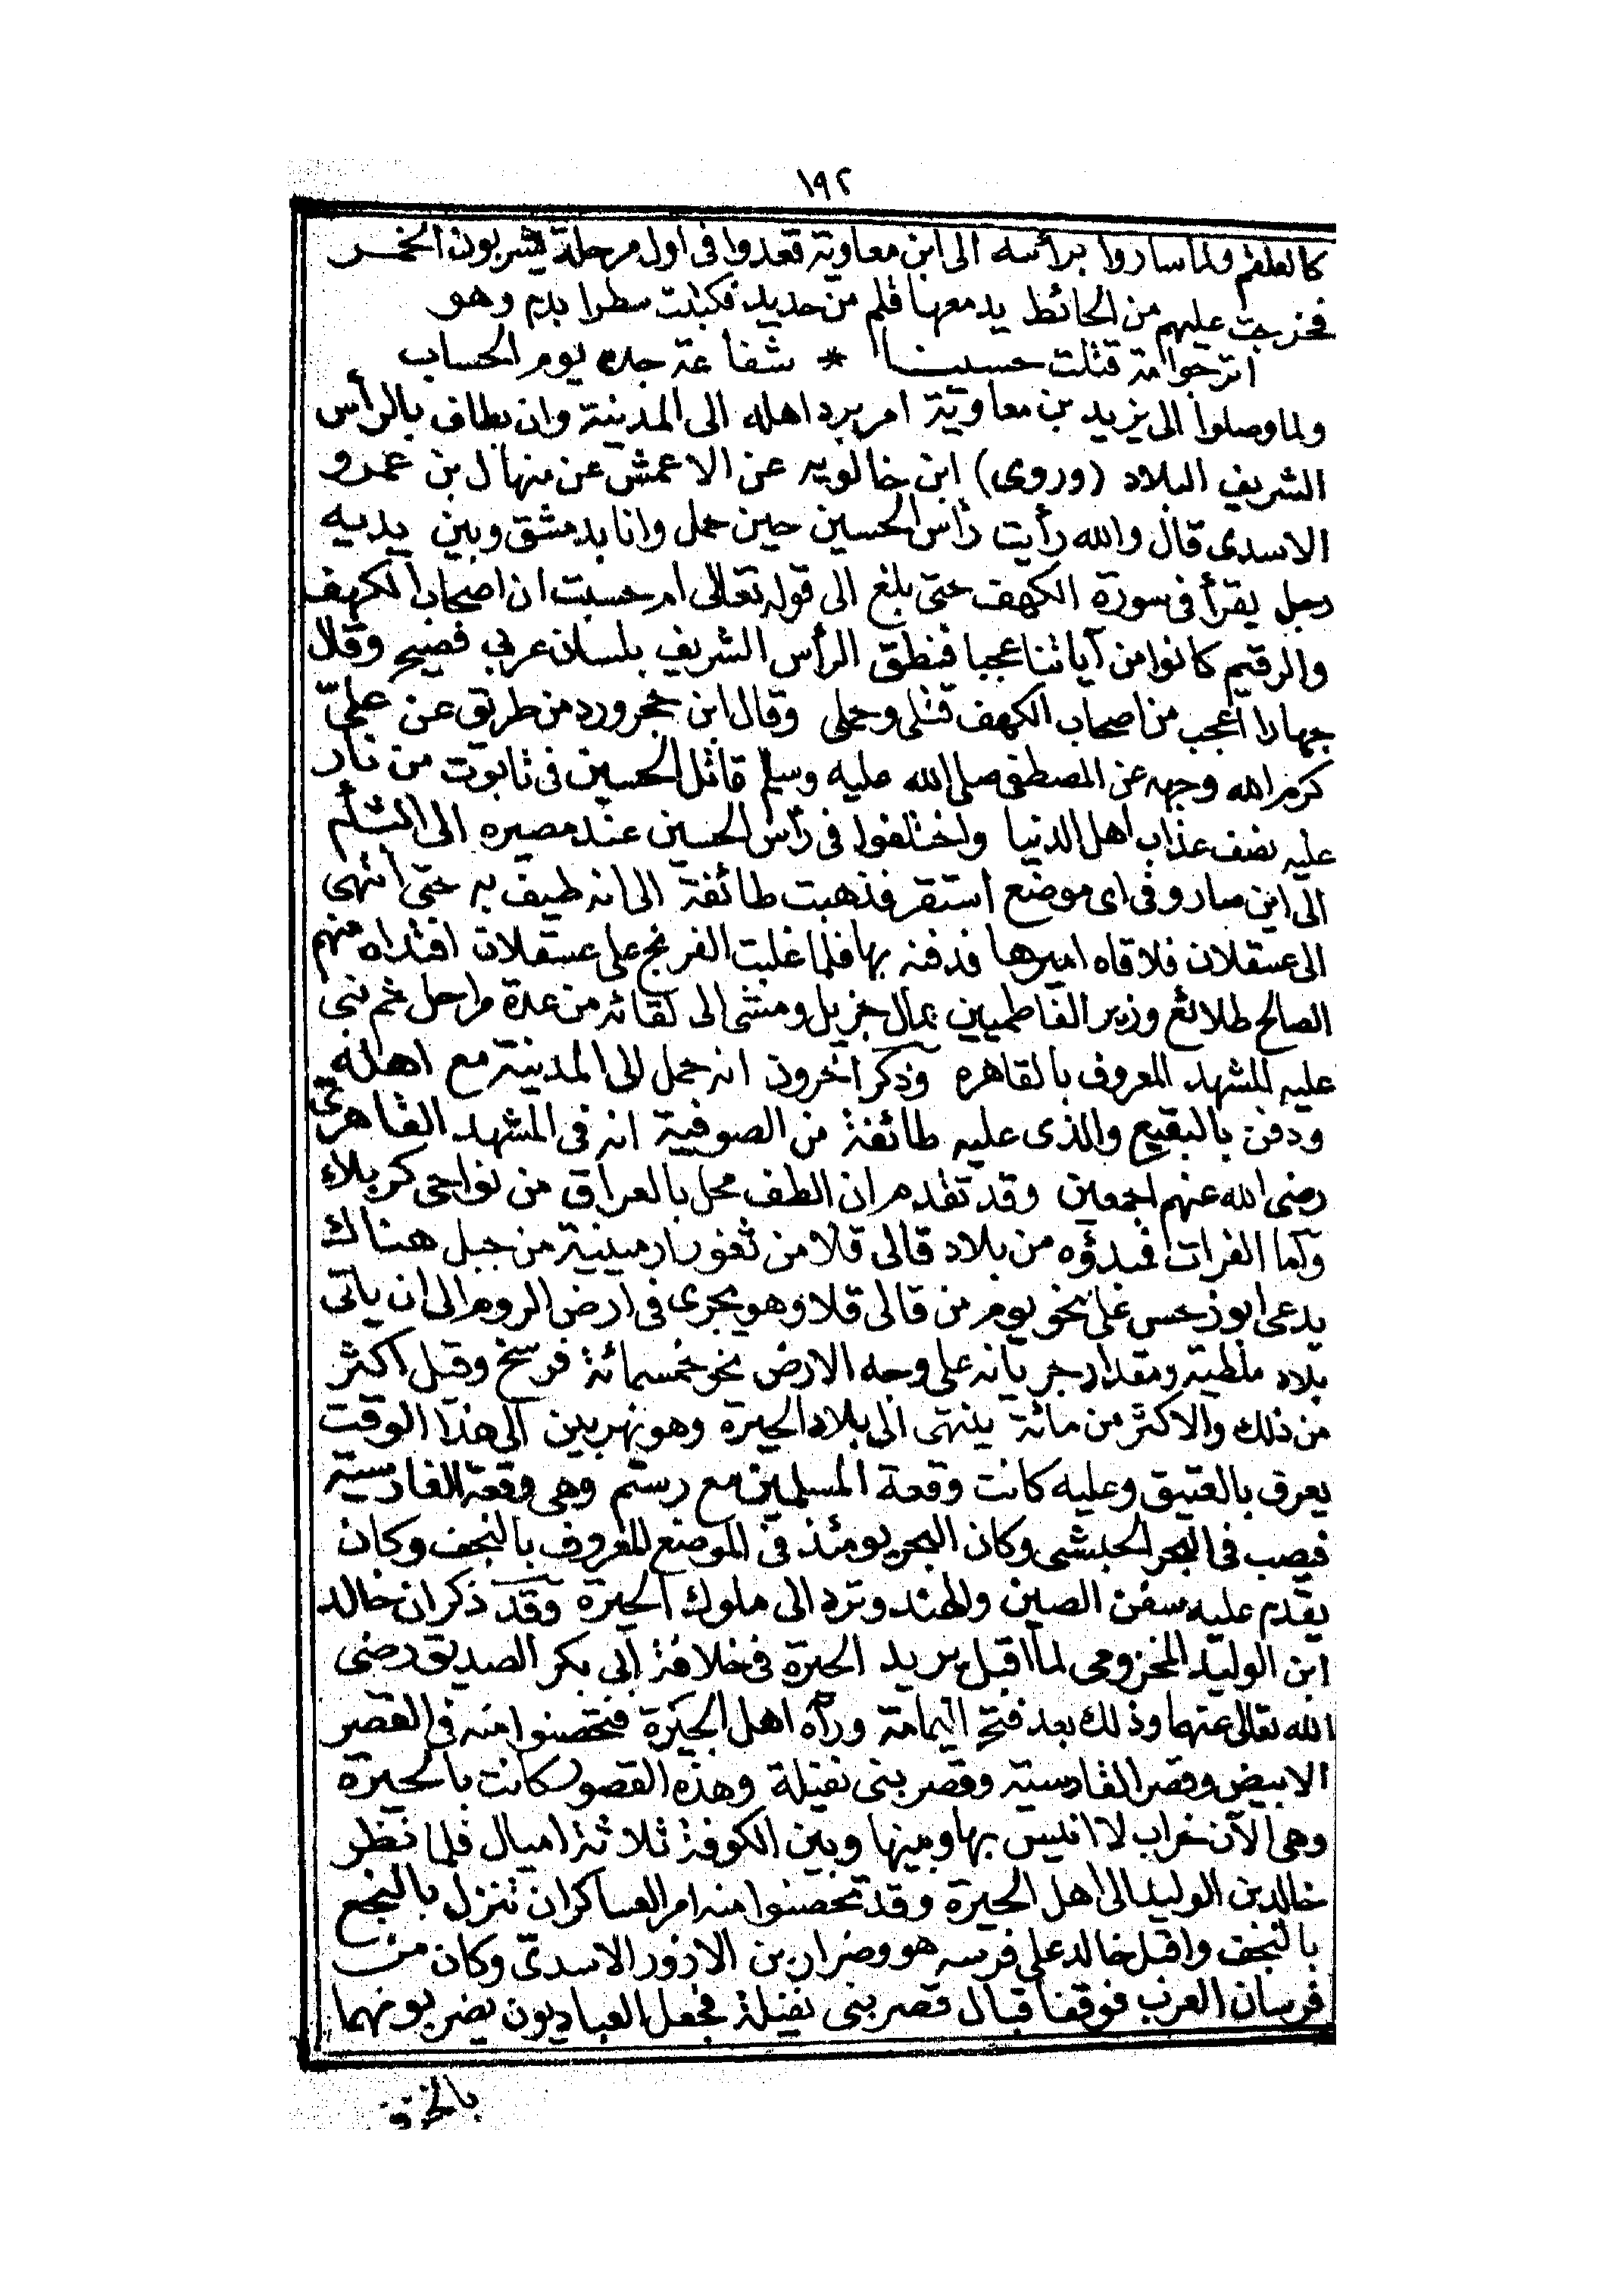 ١٩٢
كالعلقم ولما ساروا برأسه الى ابن معاوية قعدوا فى اول مرحلة يشربون الخمر
فخرجت عليهم من الحائط يد معها قلم من حديد فكتبت سطرا بدم وهو
اترجوا امة قتلت حسينا * شفاعة جده يوم الحساب
ولما وصلوا الى يزيد بن معاوية امر برد اهله الى المدينة وان يطاف بالرأس
الشريف البلاد (وروى) ابن خالويه عن الاعمش عن منهال بن عمرو
الاسدى قال والله رأيت رأس الحسين حين حمل وانا بدمشق وبين يديه
رجل يقرأ فى سورة الكهف حتى بلغ الى قوله تعالى ام حسبت ان اصحاب الكهف
والرقيم كانوا من آياتنا عجبا فنطق الرأس الشريف بلسان عربي فصيح وقال
جهارا اعجب من اصحاب الكهف قتلى وحملى وقال ابن حجر ورد من طريق عن علىّ
كرم الله وجهه عن المصطفى صلى الله عليه وسلم قاتل الحسين فى تابوت من نار
عليه نصف عذاب اهل الدنيا واختلفوا فى رأس الحسين عند مصيره الى الشأم
الى اين صار وفى اى موضع استقر فذهبت طائفة الى انه طيف به حتى انتهى
الى عسقلان فلاقاه اميرها فدفنه بها فلما غلبت الفرنج على عسقلان افتداه منهم
الصالح طلائع وزير الفاطميين بمال جزيل ومشى الى لقائه من عدة مراحل ثم بنى
عليه المشهد المعروف بالقاهره وذكر آخرون انه حمل الى المدينة مع اهله
ودفن بالبقيع والذى عليه طائفة من الصوفية انه فى المشهد القاهرىّ
رضى الله عنهم اجمعين وقد تقدم ان الطف محل بالعراق من نواحى كربلاء
وآما الفرات فمبدؤه من بلاد قالى قلا من ثغور ارمينية من جبل هناك
يدعى ابوذحس على نحو يوم من قالى قلا وهو يجرى فى ارض الروم الى ان يأتى
بلاد ملطية ومقدار جريانه على وجه الارض نحو خمسمائة فرسخ وقيل اكثر
من ذلك والاكثر من مائة ينتهى الى بلاد الحيرة وهو نهر بين الى هذا الوقت
يعرف بالعتيق وعليه كانت وقعة المسلمين مع رستم وهى وقعة القادسية
فيصب فى البحر الحبشى وكان البحر يومئذ فى الموضع المعروف بالنجف وكان
يقدم عليه سفن الصين والهند وترد الى ملوك الحيرة وقد ذكر ان خالد
ابن الوليد المخزومى لما اقبل يريد الحيرة فى خلافة ابى بكر الصديق رضى
الله تعالى عنهما وذلك بعد فتح اليمامة ورآه اهل الحيرة فتحصنوا منه فى القصر
الابيض وقصر القادسية وقصر بنى نفيلة وهذه القصور كانت بالحيرة
وهى الآن خراب لا انيس بها وبينها وبين الكوفة ثلاثة اميال فلما نظر
خالد بن الوليد الى اهل الحيرة وقد تحصنوا منه امر العساكر ان تنزل بالنجع
بالنجف واقبل خالد على فرسه هو وضرار بن الازور الاسدىّ وكان من
فرسان العرب فوقفا قبال قصر بنى نفيلة فجعل العباديون يضربونهما
بالخزف